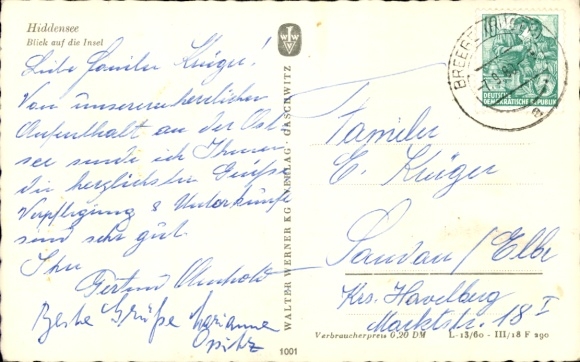 Hiddensee
Blick auf die Insel
Liebe Familie Krüger!
Von unserem herrlichen
Aufenthalt an der Ost-
see sende ich Ihnen
die herzlichsten Grüße
Verpflegung & Unterkünfte
sind sehr gut.
Ihr
Beste Grüße Marianne
Opitz
WALTER WERNER KG · VERLAG · GASCHWITZ
1001
DEUTSCHE
DEMOKRATISCHE REPUBLIK
BREEGE
Familie
E. Krüger
Sandau / Elbe
Krs. Havelberg
Marktstr. 18 I
Verbraucherpreis 0,20 DM L-13/60 - III/18 F 290